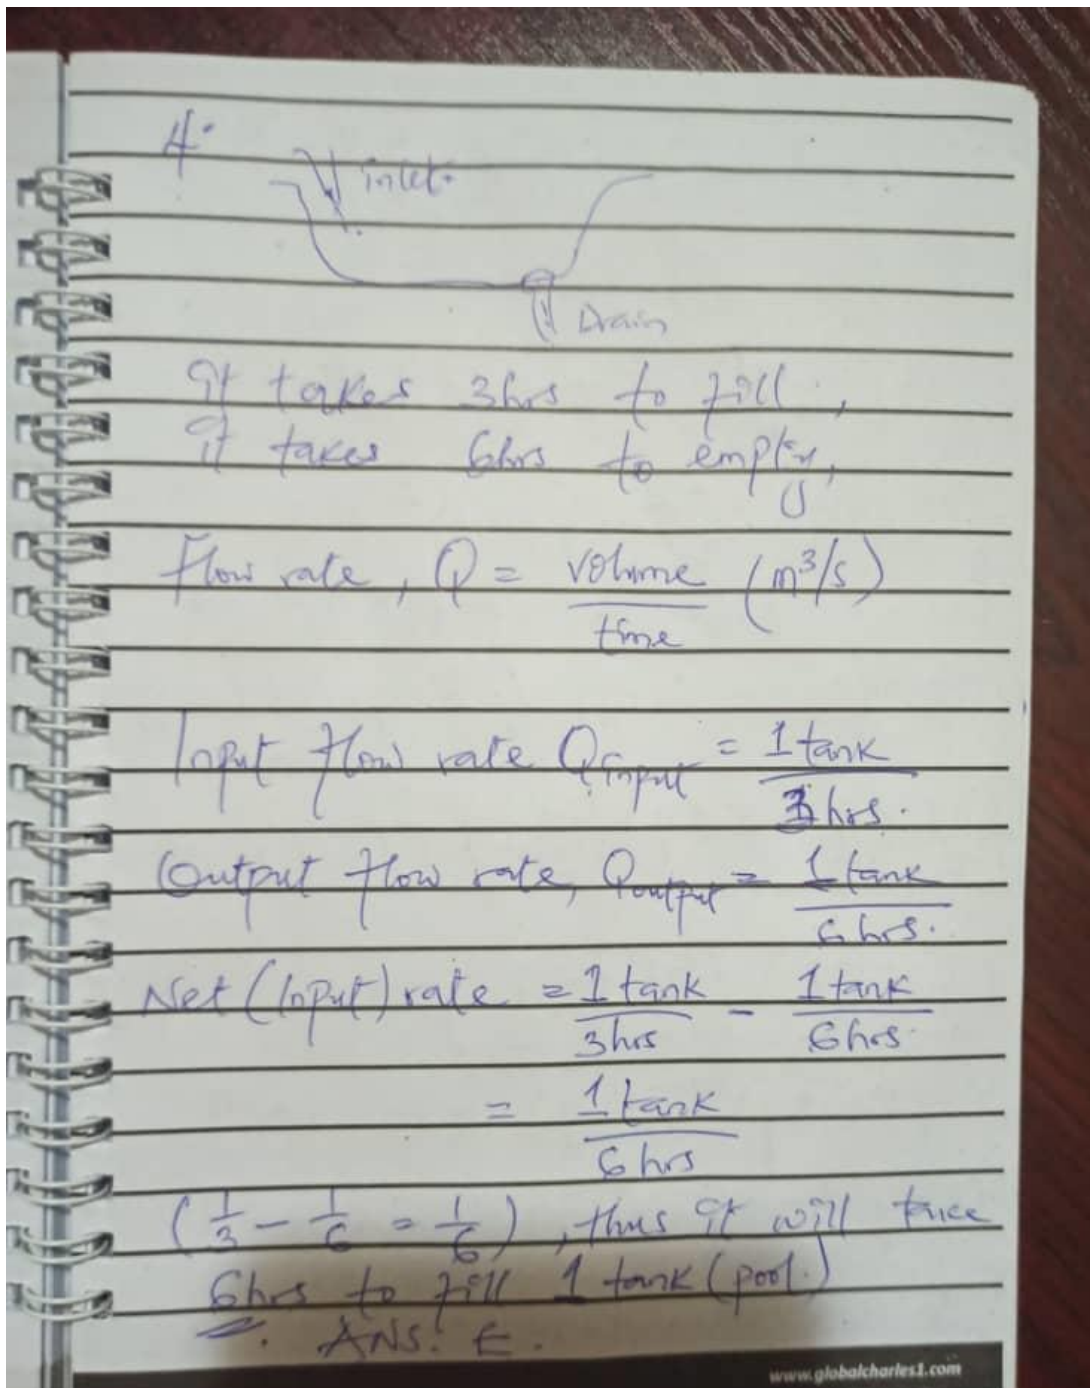 4.
inlet.
Drain
It takes 3hrs to fill,
it takes 6hrs to empty,
Flow rate, Q = volume/time (m³/s)
Input flow rate Qinput = 1 tank/3 hrs.
Output flow rate, Qoutput = 1 tank/6 hrs.
Net (Input) rate = 1 tank/3hrs - 1 tank/6hrs.
= 1 tank/6 hrs
(1/3 - 1/6 = 1/6), thus it will take
6hrs to fill 1 tank (pool.)
ANS. E.
www.globalcharles1.com